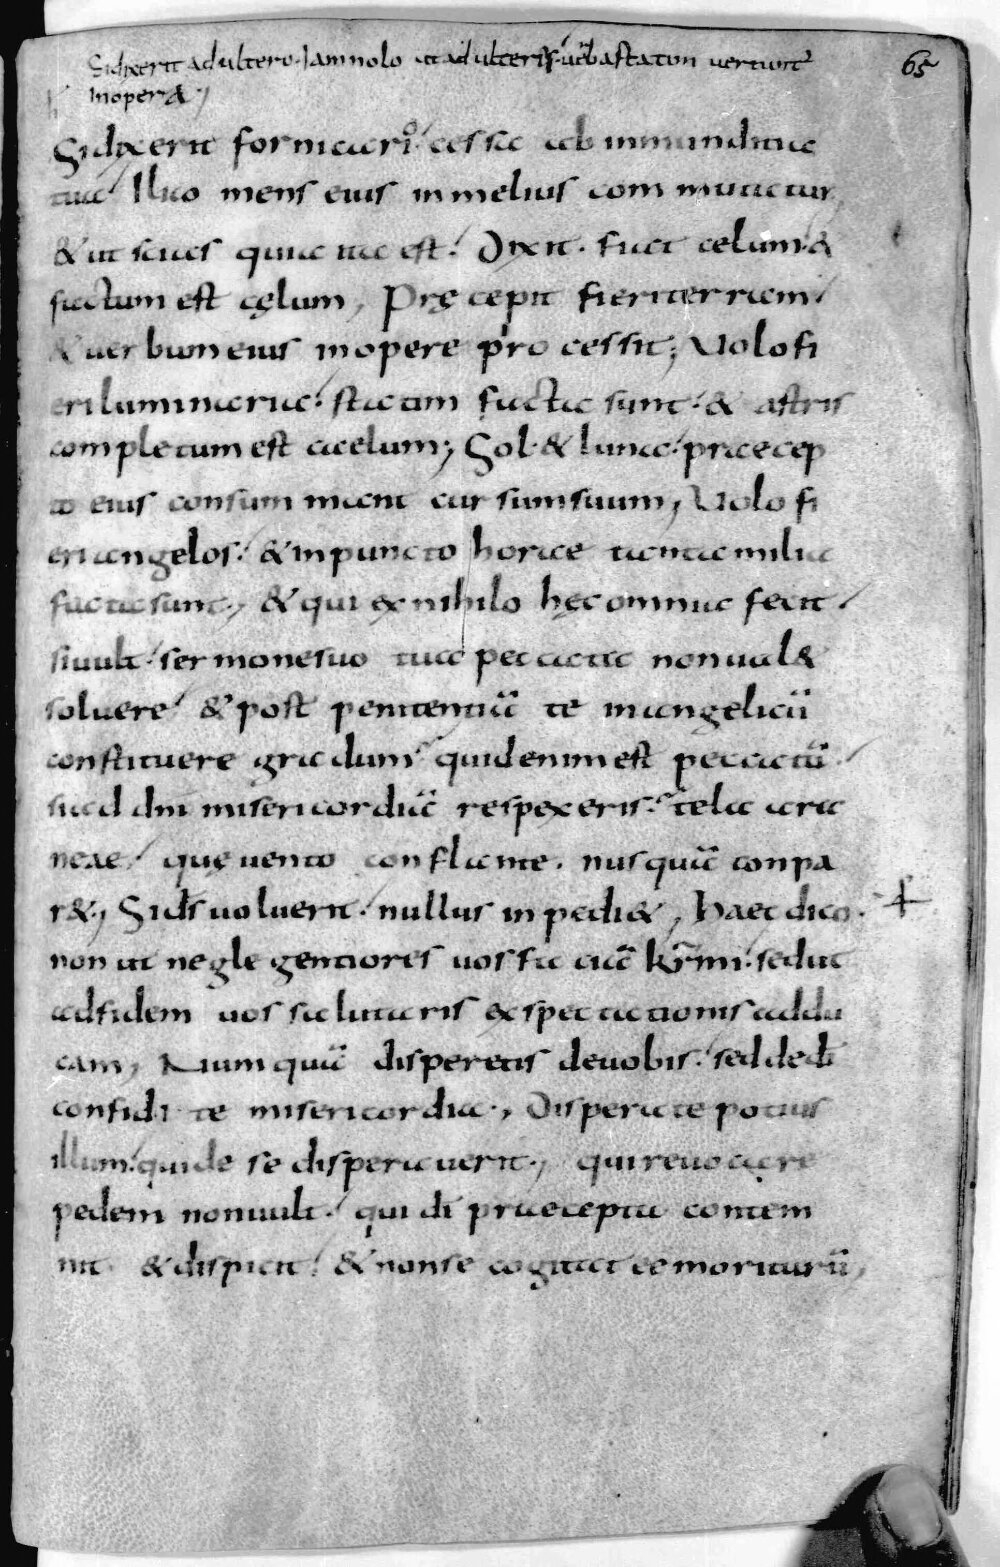 Sidixerit adultero. Iam nolo ut adulteris. uerba statim uertunt᷑
in oper&;
65
Sidixerit fornicario. cessa ab inmunditia
tua. Ilico mens eius inmelius commutatur,
& ut scias quia ita est. Dixit. fiat celum. &
factum est cęlum, Pręcepit fieriterram.
& uerbum eius inopere processit; Uolo fi
eri luminaria. statim facta sunt. & astris
completum est caelum; Sol & luna. praecep
to eius consummant cursumsuum, Uolo fi
eriangelos. & inpuncto horae tanta milia
factasunt, & qui exnihilo hęcomnia fecit.
siuult. sermonesuo tua peccata nonual&
soluere. & post penitentiā te inangelicū
constituere gradum. quidenim est peccatū.
siad dn̄i misericordiā respexeris. tela ara
neae. quę uento conflante. nusquā conpa
r&; Sids̄ uoluerit. nullus inpedi&, Haec dico.
non ut neglegentiores uos faciā kr̄mi. sedut
adfidem uos salutaris exspectationis addu
cam, Numquā disperetis deuobis. sed dedī
confidite misericordia, Disperate potius
illum. quide se disperauerit, quireuocare
pedem nonuult. qui dī praecepta contem
nit & dispicit. & nonse cogitat ee moriturū,